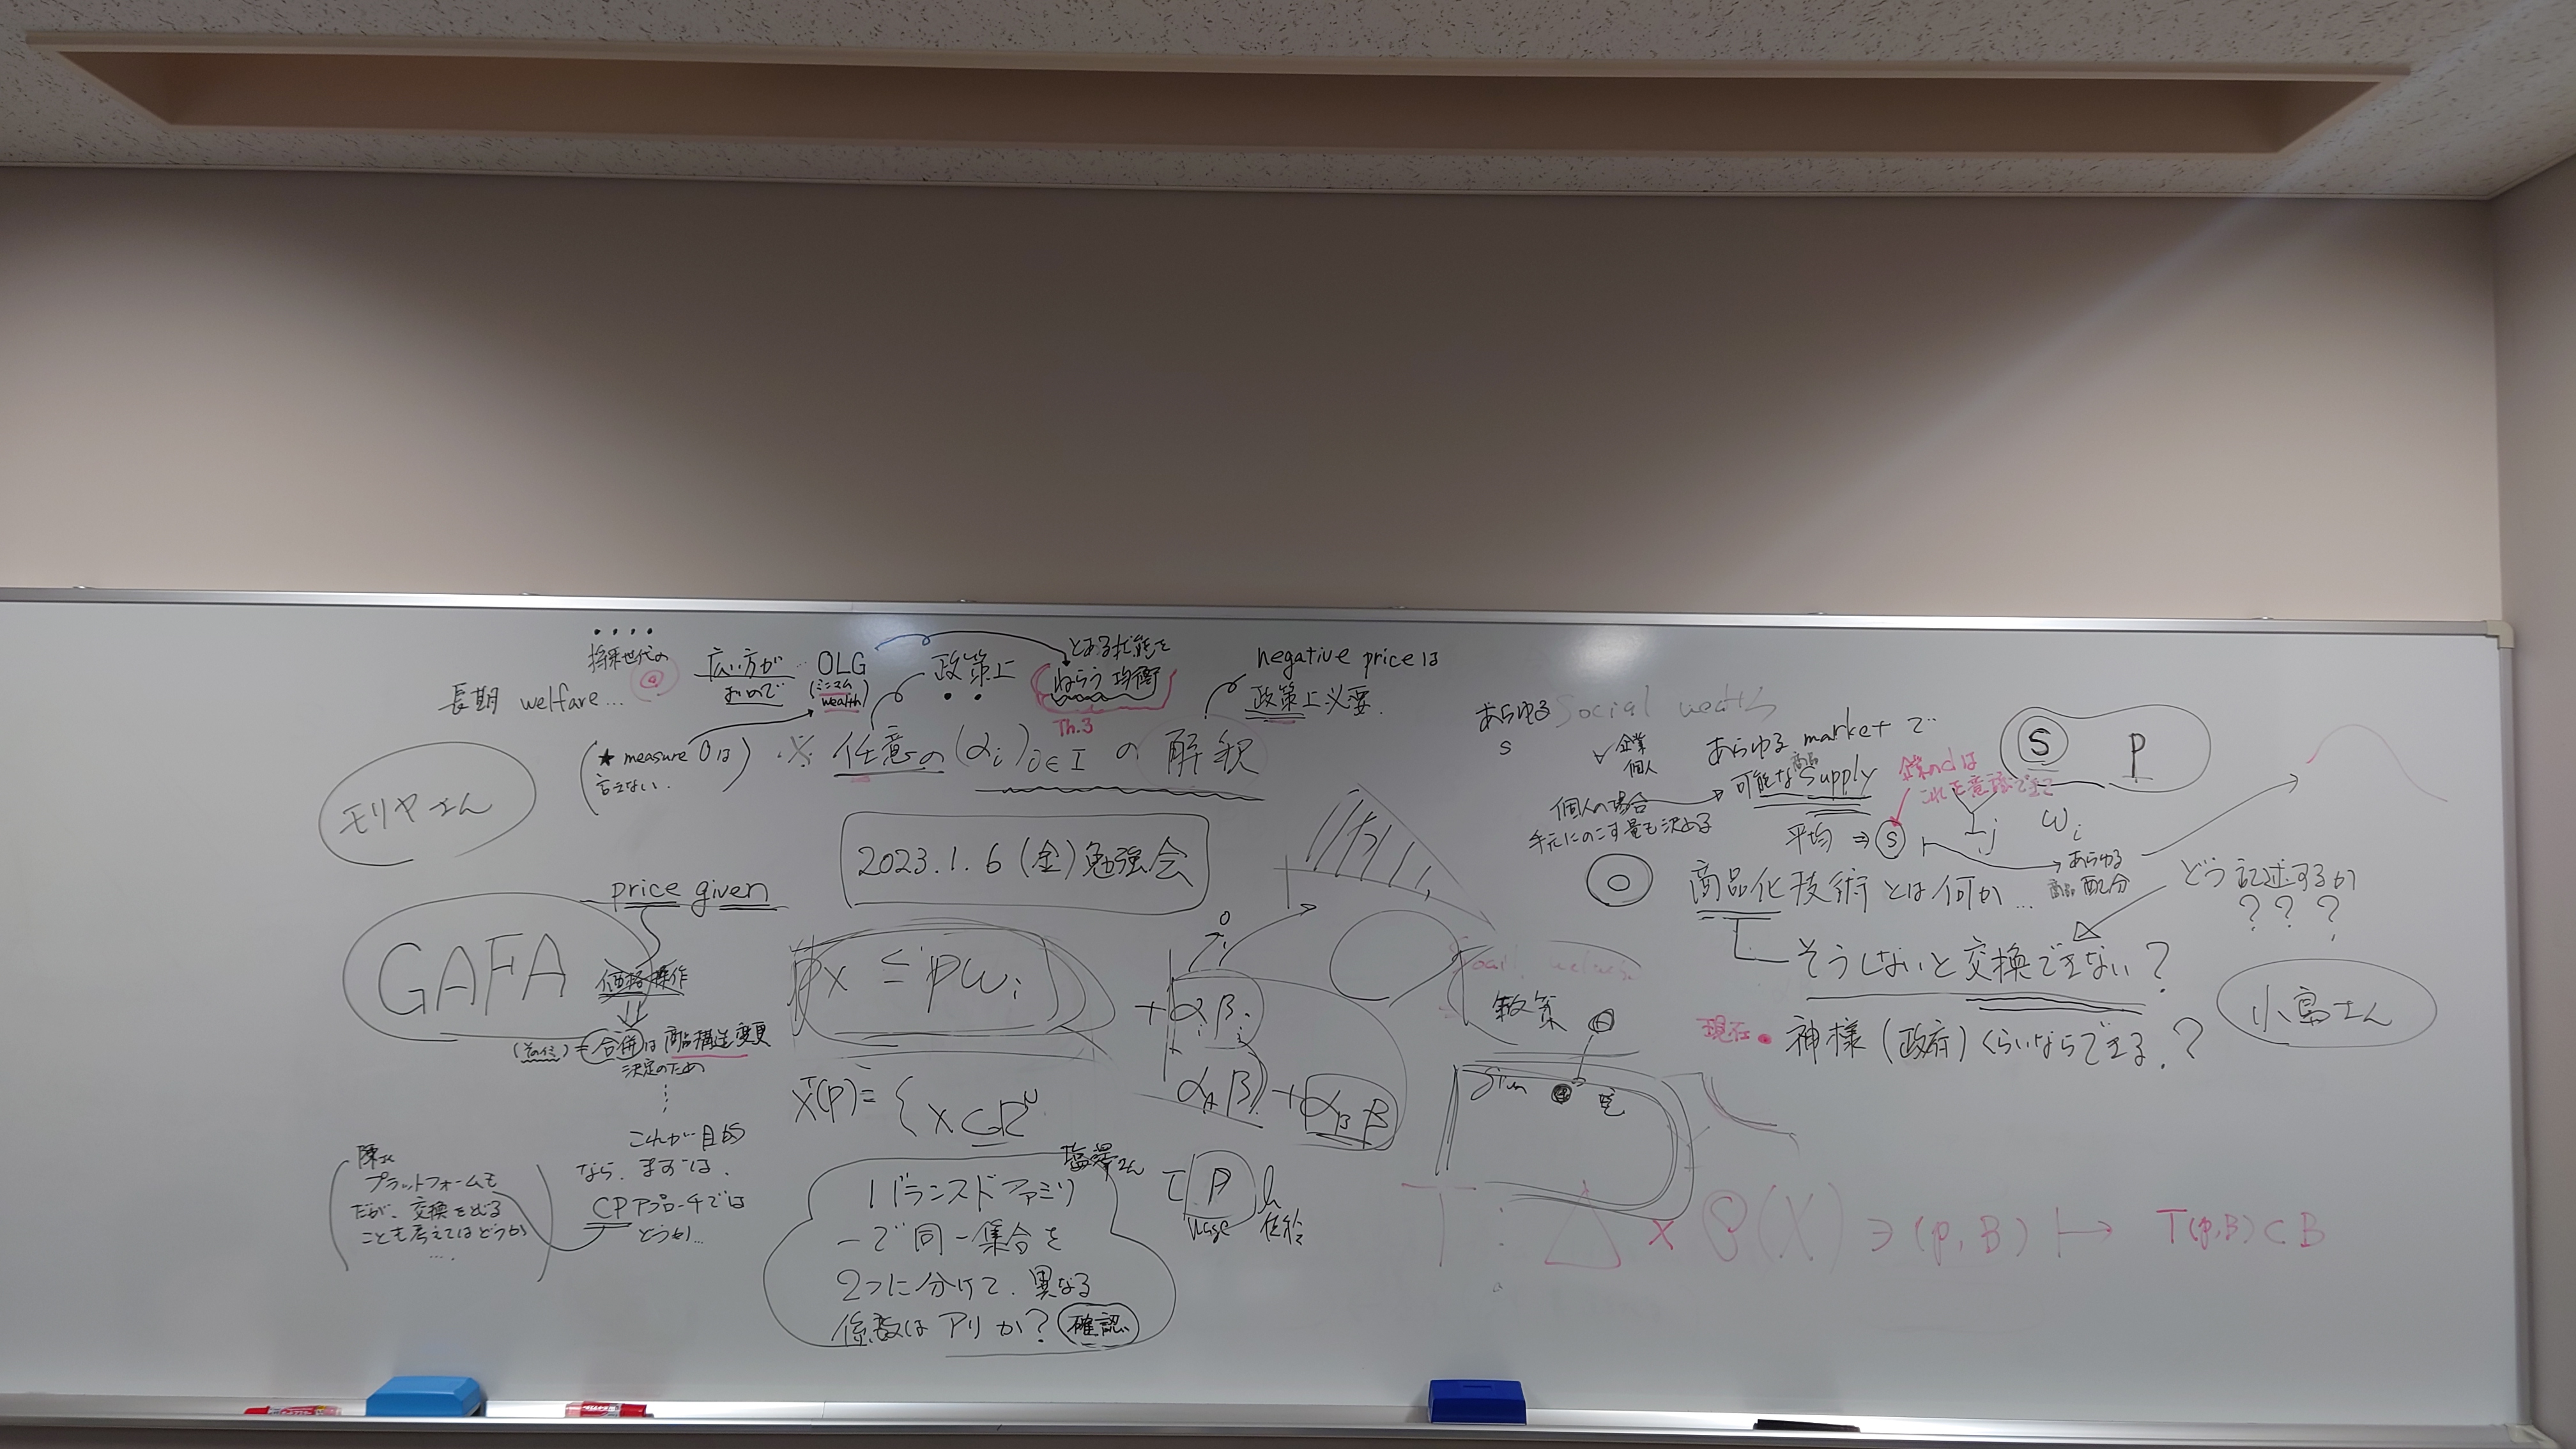 将来世代の
長期 welfare...
広い方が
OLG
(ミニマム
wealth)
政策上
とある状態を
ねらう均衡
Th.3
negative priceは
政策上必要.
(★ measure 0は
言えない.)
※ 任意の (αi)i∈I の 解釈
モリヤさん
2023.1.6 (金) 勉強会
price given
GAFA
価格操作
(その他) = 合併は 商品構造変更
決定のため
これが目的
なら、まずは、
CPアプローチでは
どうか...
プラットフォームも
だが、交換をとじる
ことも考えてはどうか
....
px ≦ pωi
X(p) = { x ⊂ R
+αiβi
αAβ + αBβ
塩澤さん
1バランスドファミリ
ーで同一集合を
2つに分けて、異なる
係数は アリか? 確認
あらゆる
s
Social wealth
企業
個人
あらゆる market で
可能な 商品 Supply
個人の場合
手元にのこす量も決める
平均 ⇒ S
企業のdは
S P
j
ωi
あらゆる
商品 配分
◎ 商品化技術 とは何か...
どう記述するか
? ? ?
そうしないと交換できない?
現在・神様 (政府) くらいならできる.?
小島さん
政策
given
T : Δ × 𝒫(X) ∋ (p, B) ↦ T(p,B) ⊂ B